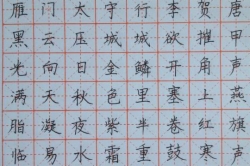 雁门太守行李贺唐
黑云压城城欲摧甲
光向日金鳞开角声
满天秋色里塞上燕
脂凝夜紫半卷红旗
临易水霜重鼓寒声